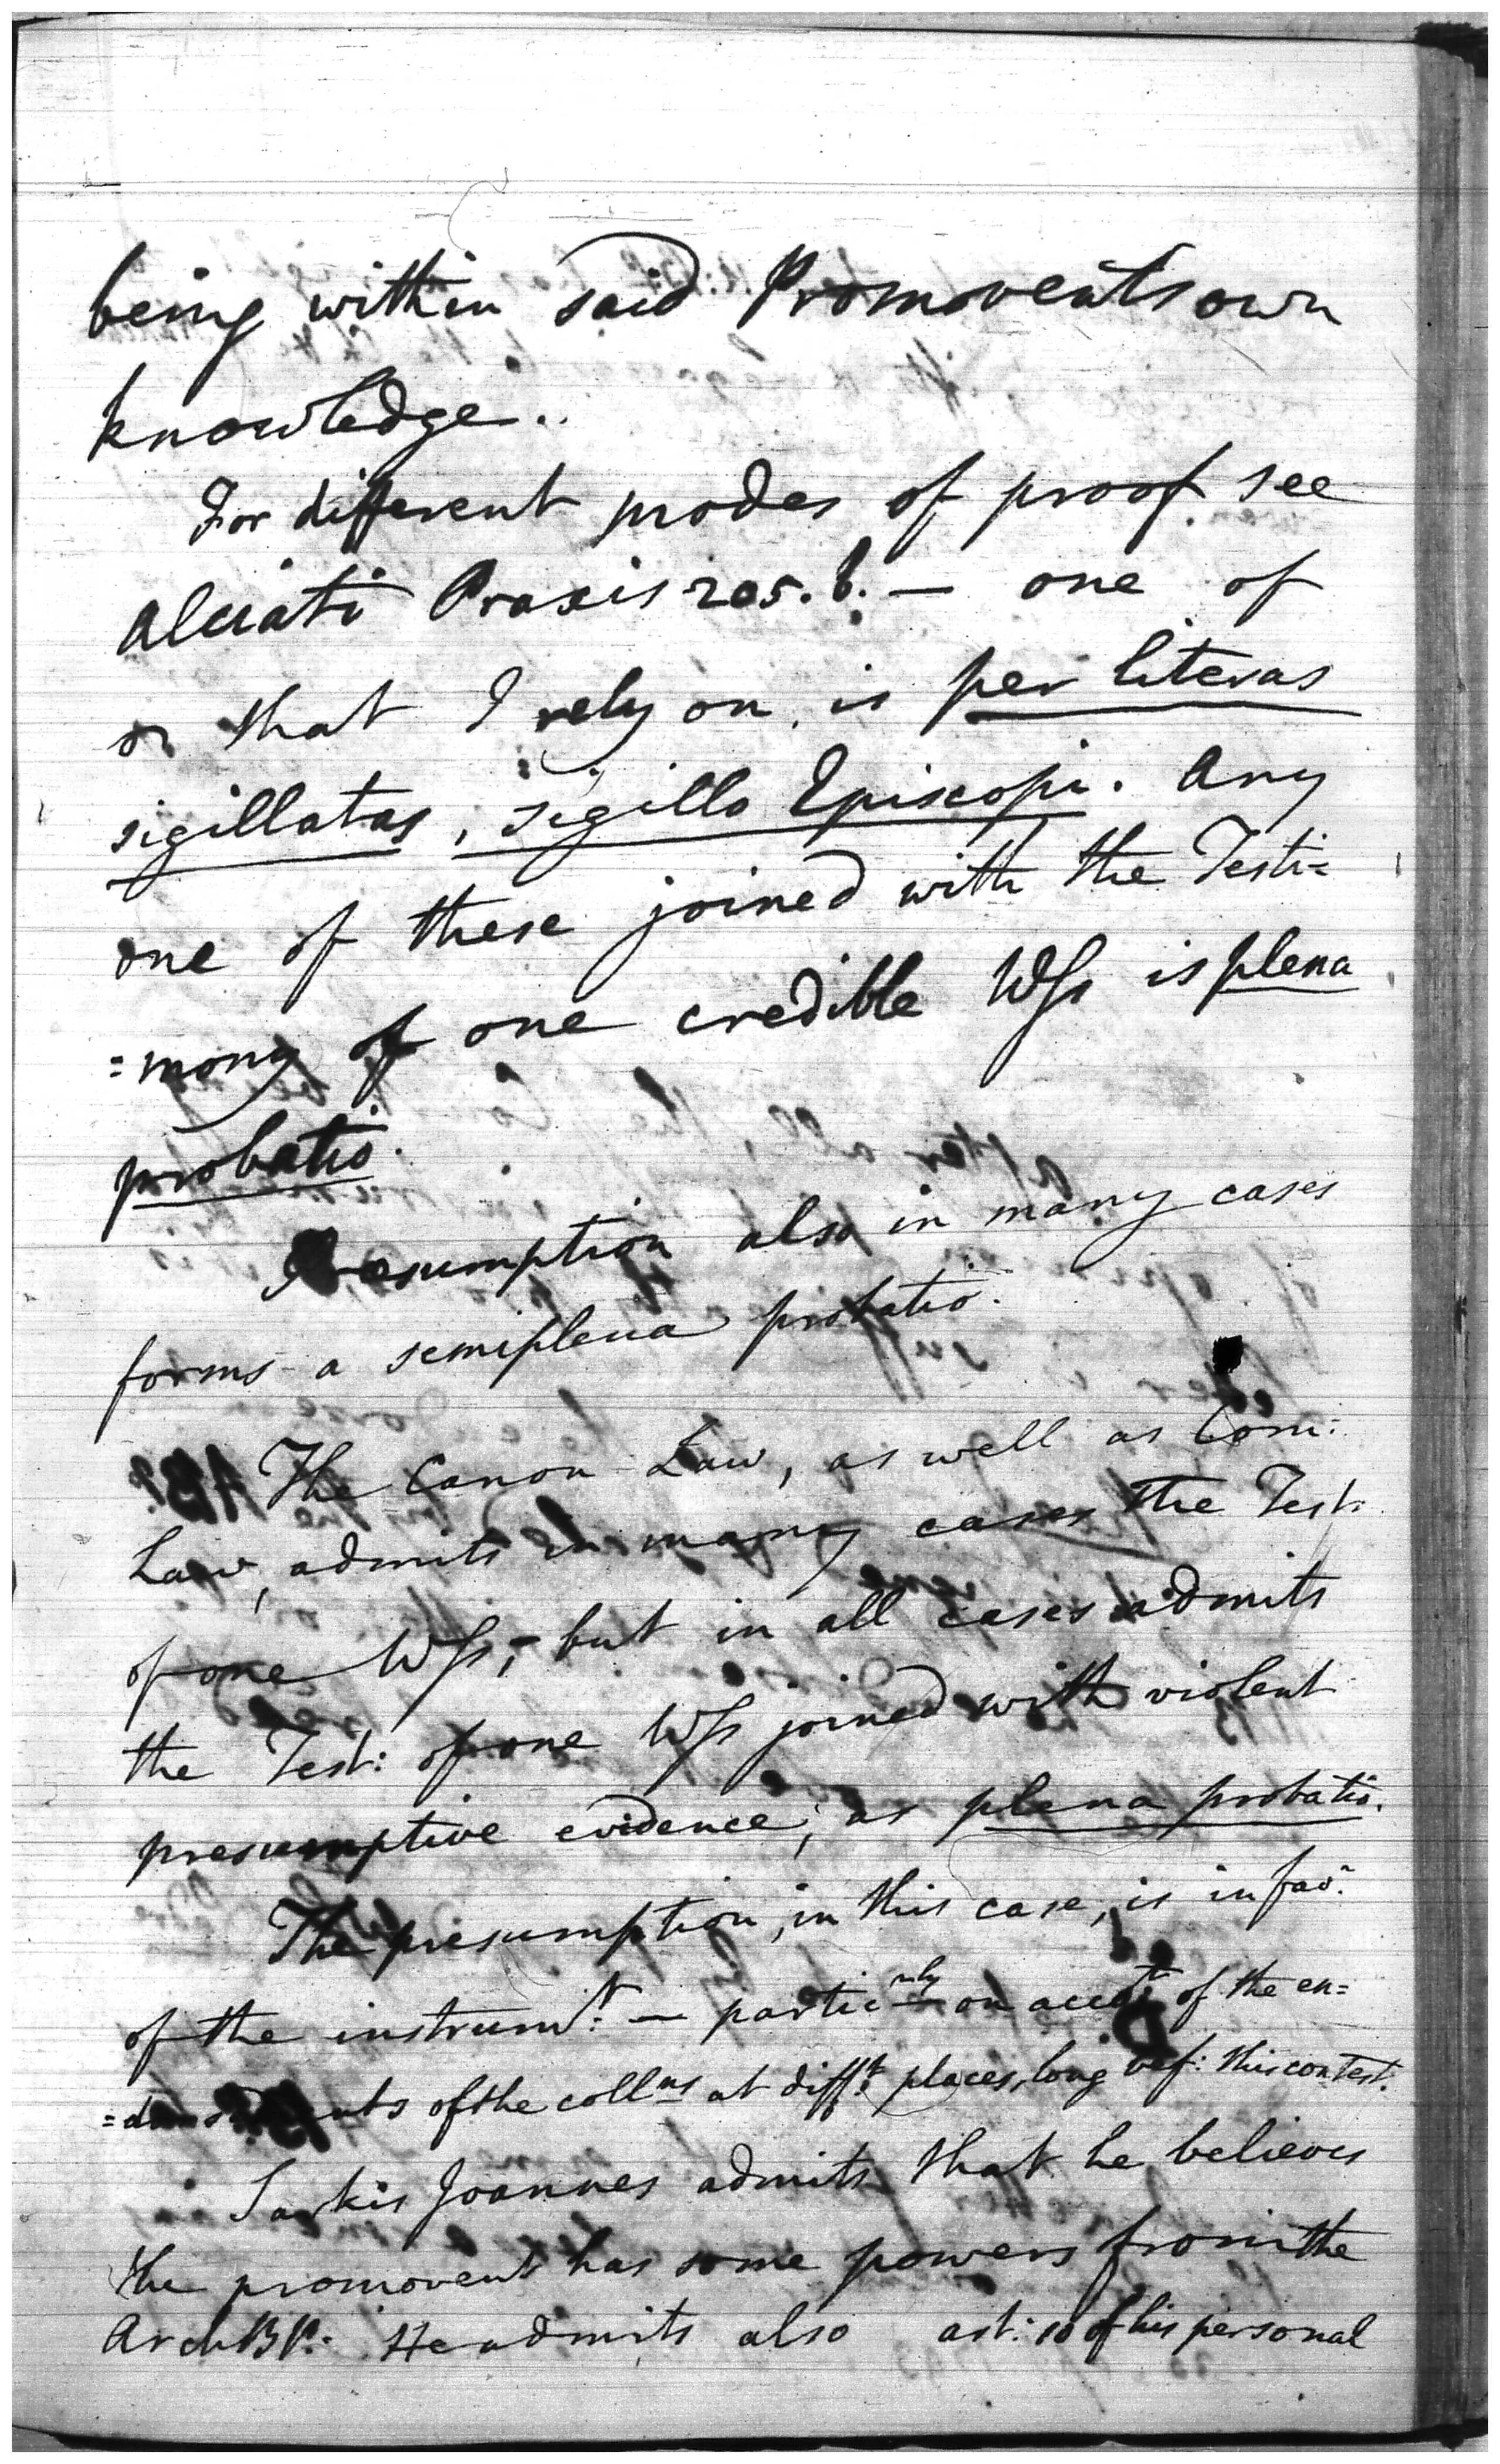 being within said Promovents own
knowledge..
For different modes of proof see
Alciati Praxis 205. b. — one of
that I rely on, is per literas
sigillatas, sigillo Episcopi. Any
one of these joined with the Testi=
=mony of one credible Wſs is plena
probatio.
Presumption also in many cases
forms a semiplena probatio.
The Canon Law, as well as Com:
Law, admits in many cases the Test:
of one Wſs, - but in all cases admits
the Test: of one Wſs joined with violent
presumptive evidence, as plena probatio.
The presumption, in this case, is in favr.
of the instrumt: — particrly on acct of the en=
of the collns at difft. places, long bef: this contest.
Sarkis Joannes admits that he believes
the promovent has some powers from the
ArchBP: He admits also art: 10 of his personal